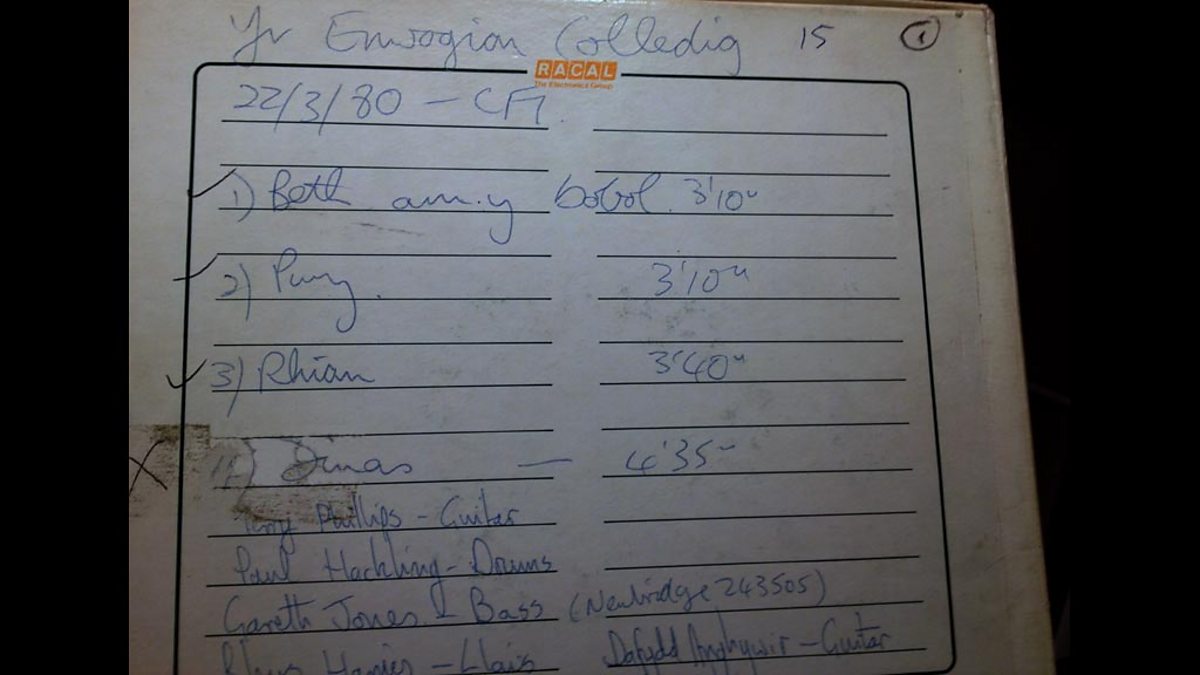 Yr Enwogion Colledig 15 1
RACAL
The Electronics Group
22/3/80 - CF1.
1) Beth am y bobol. 3'10"
2) Pwy. 3'10"
3) Rhian 3'40"
4) Dinas - 4'35"
Phillips - Guitar
Paul Hackling - Drums
Gareth Jones - Bass (Newbridge 243505)
Rhys - Llais Dafydd - Guitar